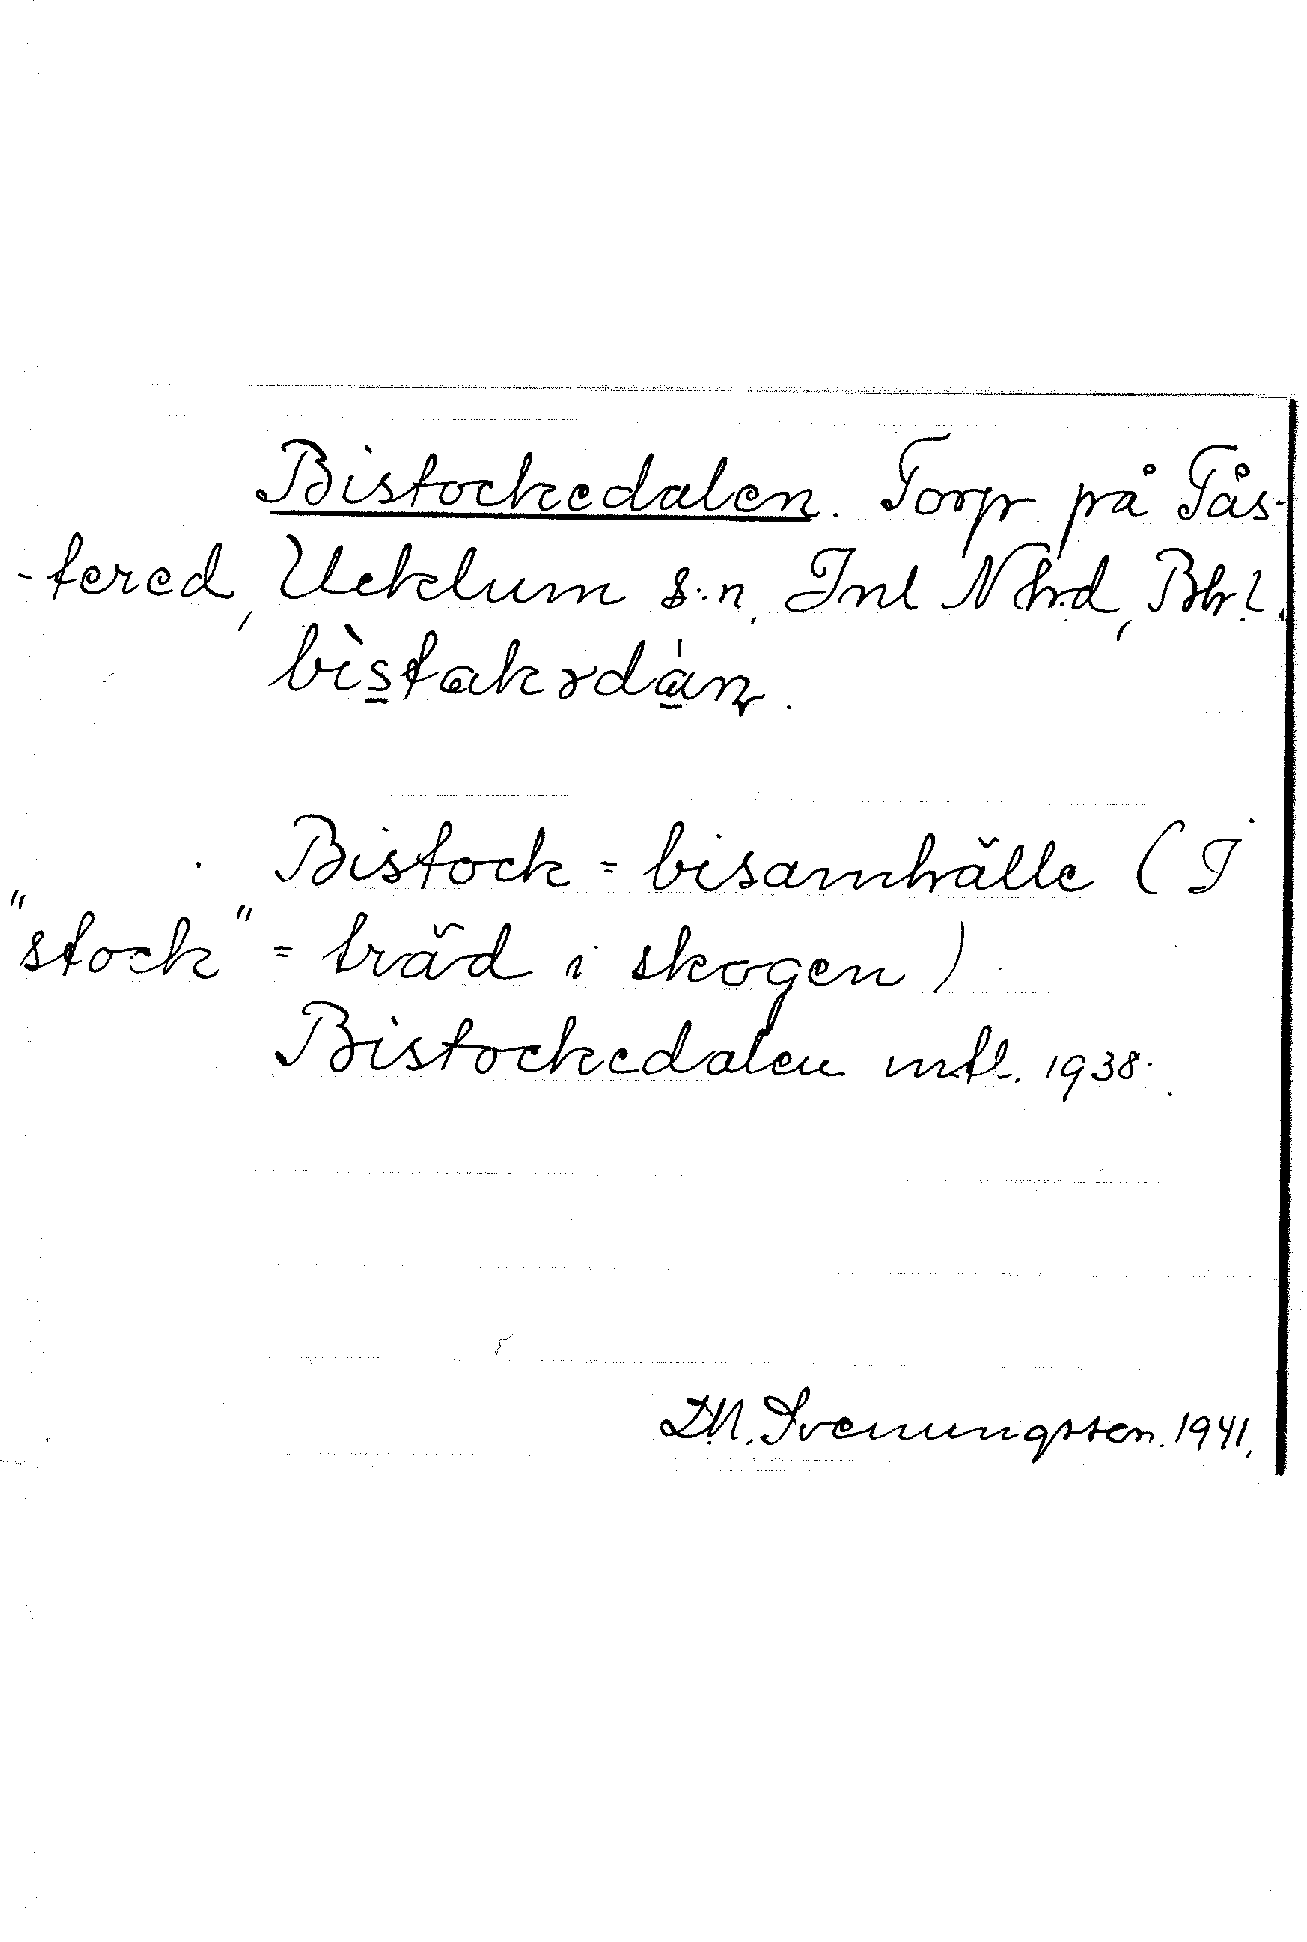 Bistockedalen. Torp på Tås-
-tered, Ucklum s:n, Inl N hrd, Bhl.
bìstakədàn.
Bistock = bisamhälle (I
"stock" = träd i skogen)
Bistockedalen mtl. 1938.
D.N. Svenungsson. 1941.